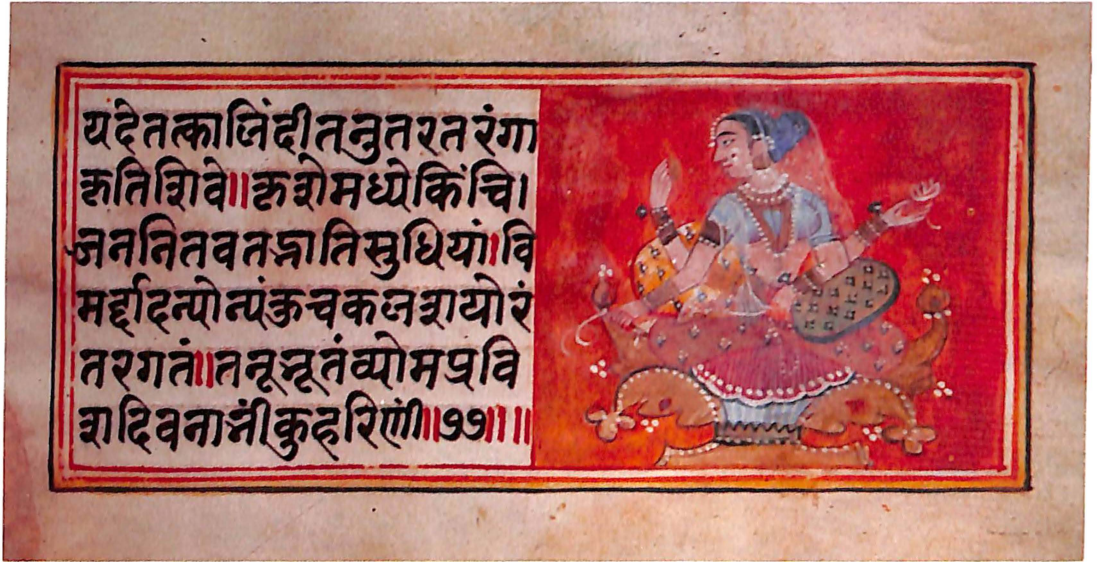 यदेतत्कालिंदीतनुतरतरंगा
कृतिशिवे॥कृशेमध्येकिंचि।
ज्जननितवतद्भातिसुधियां।वि
मर्द्दादन्योन्यंकुचकलशयोरं
तरगतं॥तनूभूतंव्योमप्रवि
शदिवनाभीकुहरिणीं॥७७॥॥